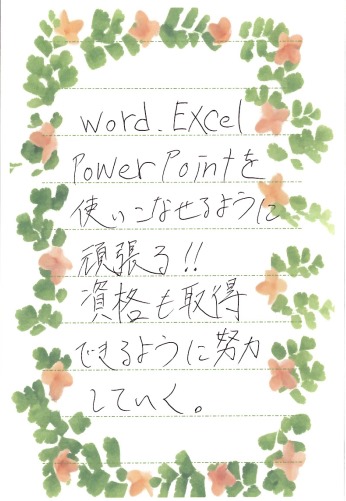 word.Excel
PowerPointを
使いこなせるように
頑張る!!
資格も取得
できるように努力
していく。